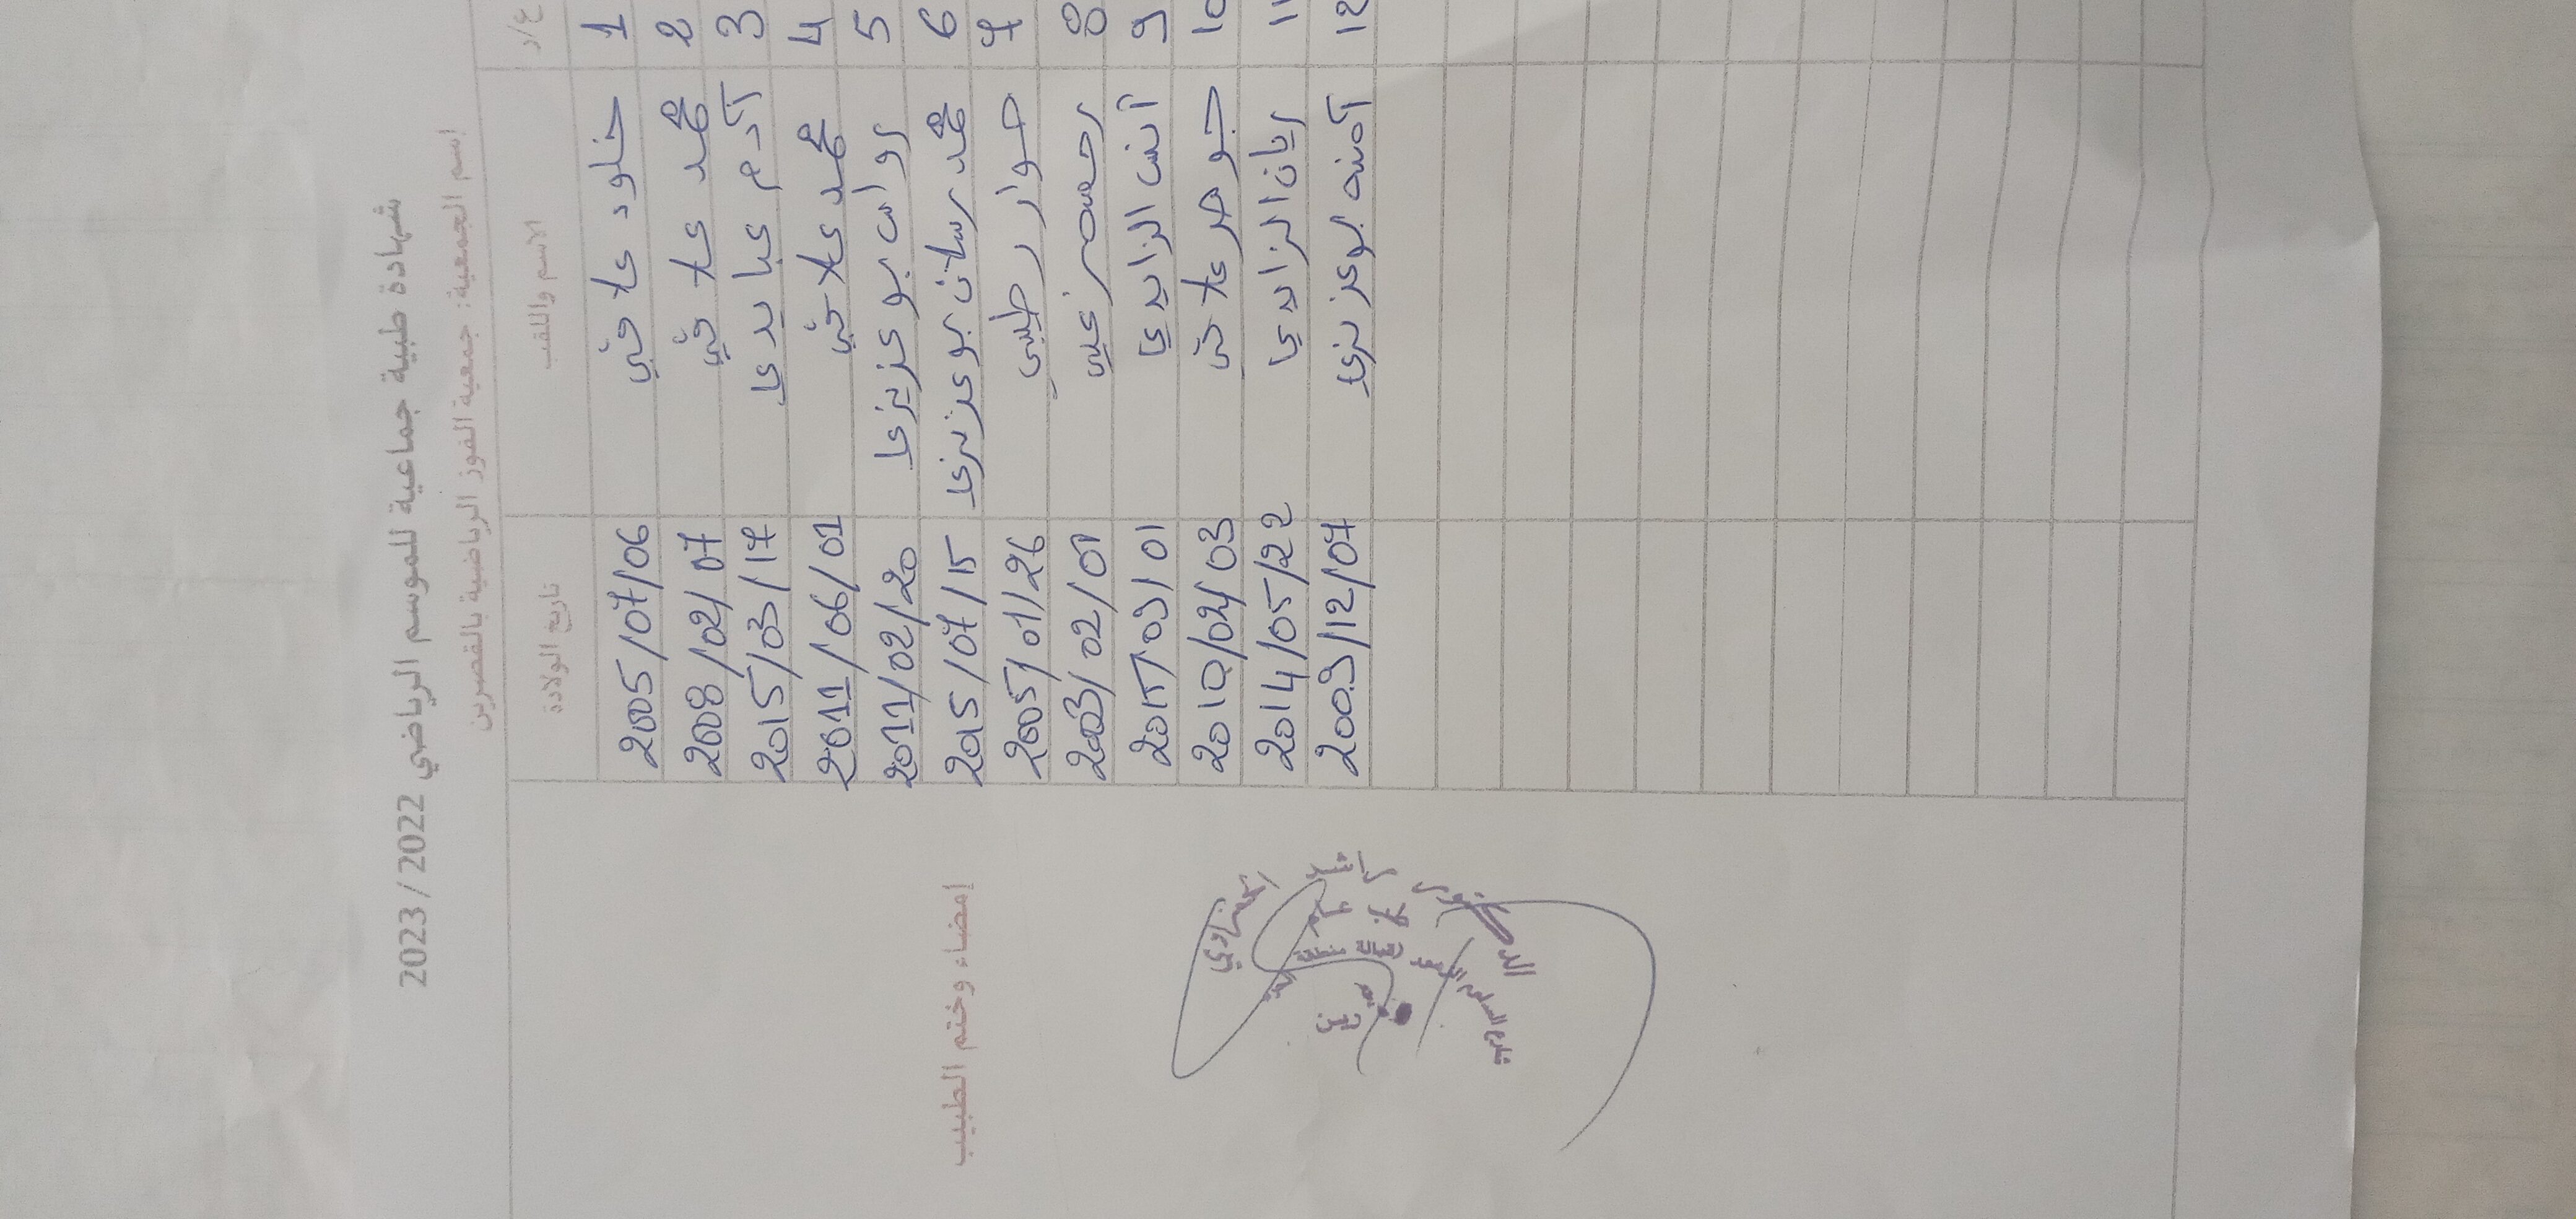 شهادة طبية جماعية للموسم الرياضي 2022 / 2023
اسم الجمعية: جمعية الفوز الرياضية بالقصرين
ع/د الاسم واللقب تاريخ الولادة
1 خلود علاقي 2005/07/06
2 محمد علاقي 2008/02/07
3 آدم عبايدي 2015/03/17
4 محمد علاقي 2011/06/01
5 بوعزيزي 2011/02/20
6 محمد رسلان بوعزيزي 2015/07/15
7 حوار رطيبي 2005/01/26
8 2003/02/01
9 أنس الزايدي 2015/09/01
10 جوهر علاقي 2010/04/03
11 ريان الزايدي 2014/05/22
12 آمنه بوعزيزي 2009/12/07
إمضاء وختم الطبيب